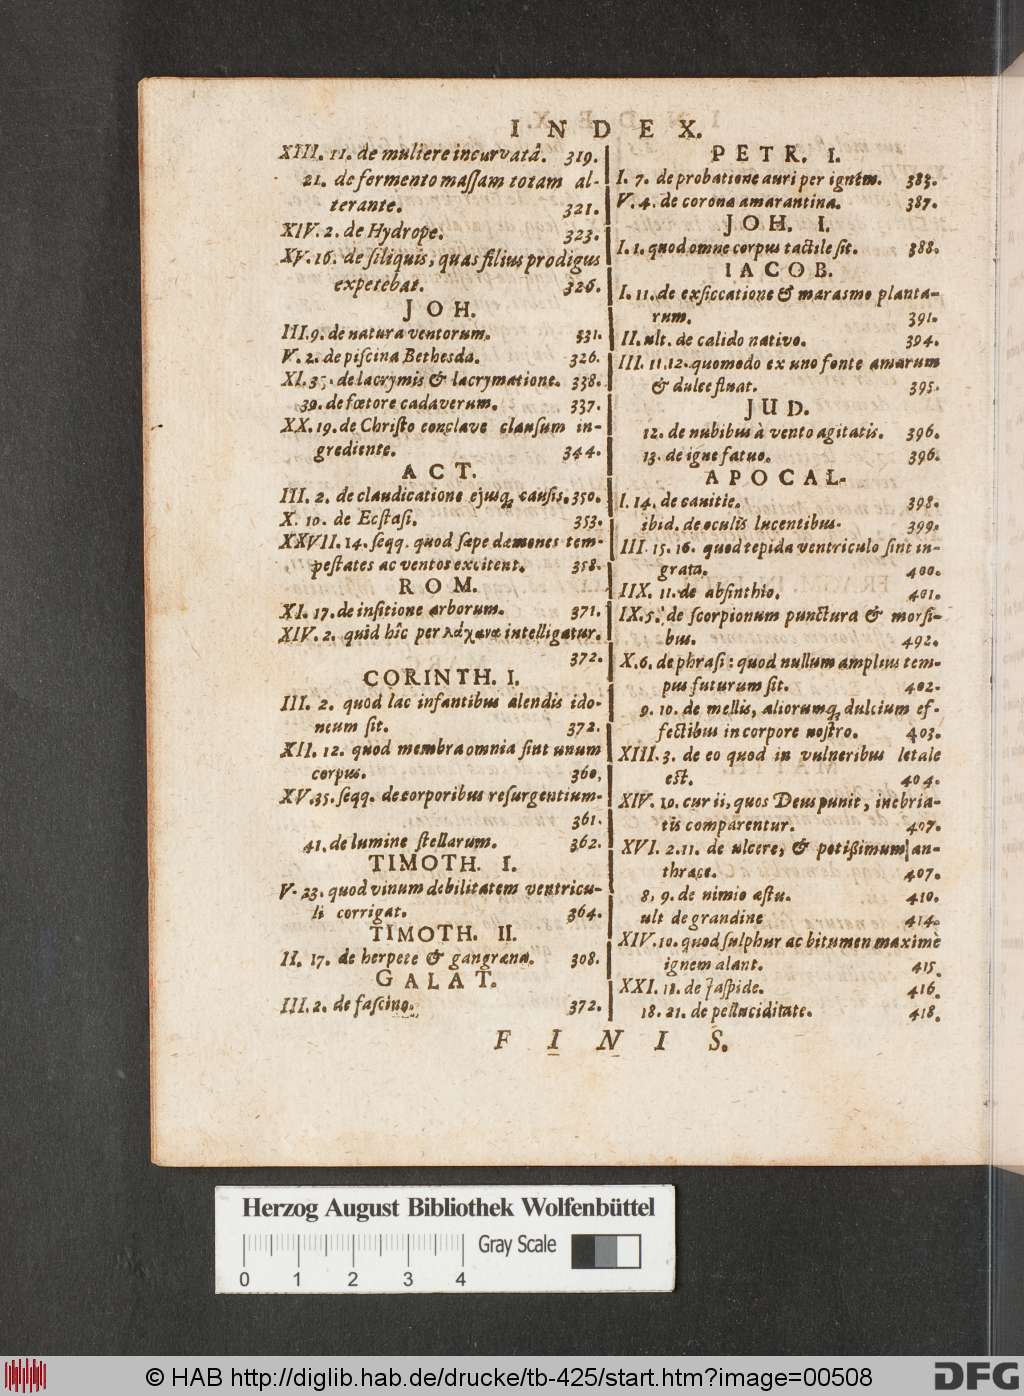 INDEX.
XIII. 11. de muliere incurvatâ. 319.
21. de fermento maſſam totam al-
terante. 321.
XIV. 2. de Hydrope. 323.
XV. 16. de ſiliquis, quas filius prodigus
expetebat. 326.
JOH.
III. 9. de natura ventorum. 331.
V. 2. de piſcina Bethesda. 326.
XI. 35. de lacrymis & lacrymatione. 338.
39. de fœtore cadaverum. 337.
XX. 19. de Chriſto conclave clauſum in-
grediente. 344.
ACT.
III. 2. de claudicatione ejusq; cauſis. 350.
X. 10. de Ecſtaſi. 353.
XXVII. 14. ſeqq. quod ſæpe dæmones tem-
peſtates ac ventos excitent. 358.
ROM.
XI. 17. de inſitione arborum. 371.
XIV. 2. quid hîc per λάχανα intelligatur.
372.
CORINTH. I.
III. 2. quod lac infantibus alendis ido-
neum ſit. 372.
XII. 12. quod membra omnia ſint unum
corpus. 360,
XV. 35. ſeqq. de corporibus reſurgentium.
361.
41. de lumine ſtellarum. 362.
TIMOTH. I.
V. 23. quod vinum debilitatem ventricu-
li corrigat. 364.
TIMOTH. II.
II. 17. de herpete & gangræna. 308.
GALAT.
III. 2. de faſcino. 372.
PETR. I.
I. 7. de probatione auri per ignem. 383.
V. 4. de corona amarantina. 387.
JOH. I.
I. 1. quod omne corpus tactile ſit. 388.
IACOB.
I. 11. de exſiccatione & marasmo planta-
rum. 391.
II. ult. de calido nativo. 394.
III. 11. 12. quomodo ex uno fonte amarum
& dulce fluat. 395.
JUD.
12. de nubibus à vento agitatis. 396.
13. de igne fatuo. 396.
APOCAL.
I. 14. de canitie. 398.
ibid. de oculis lucentibus. 399.
III. 15. 16. quod tepida ventriculo ſint in-
grata. 400.
IIX. 11. de abſinthio. 401.
IX. 5. de ſcorpionum punctura & morſi-
bus. 492.
X. 6. de phraſi: quod nullum amplius tem-
pus futurum ſit. 402.
9. 10. de mellis, aliorumq; dulcium ef-
fectibus in corpore noſtro. 403.
XIII. 3. de eo quod in vulneribus letale
eſt. 404.
XIV. 10. cur ii, quos Deus punit, inebria-
tis comparentur. 407.
XVI. 2. 11. de ulcere, & potißimum an-
thrace. 407.
8, 9. de nimio æſtu. 410.
ult de grandine 414.
XIV. 10. quod ſulphur ac bitumen maximè
ignem alant. 415.
XXI. 18. de Jaſpide. 416.
18. 21. de pelluciditate. 418.
FINIS.
Herzog August Bibliothek Wolfenbüttel
Gray Scale
0 1 2 3 4
© HAB http://diglib.hab.de/drucke/tb-425/start.htm?image=00508
DFG